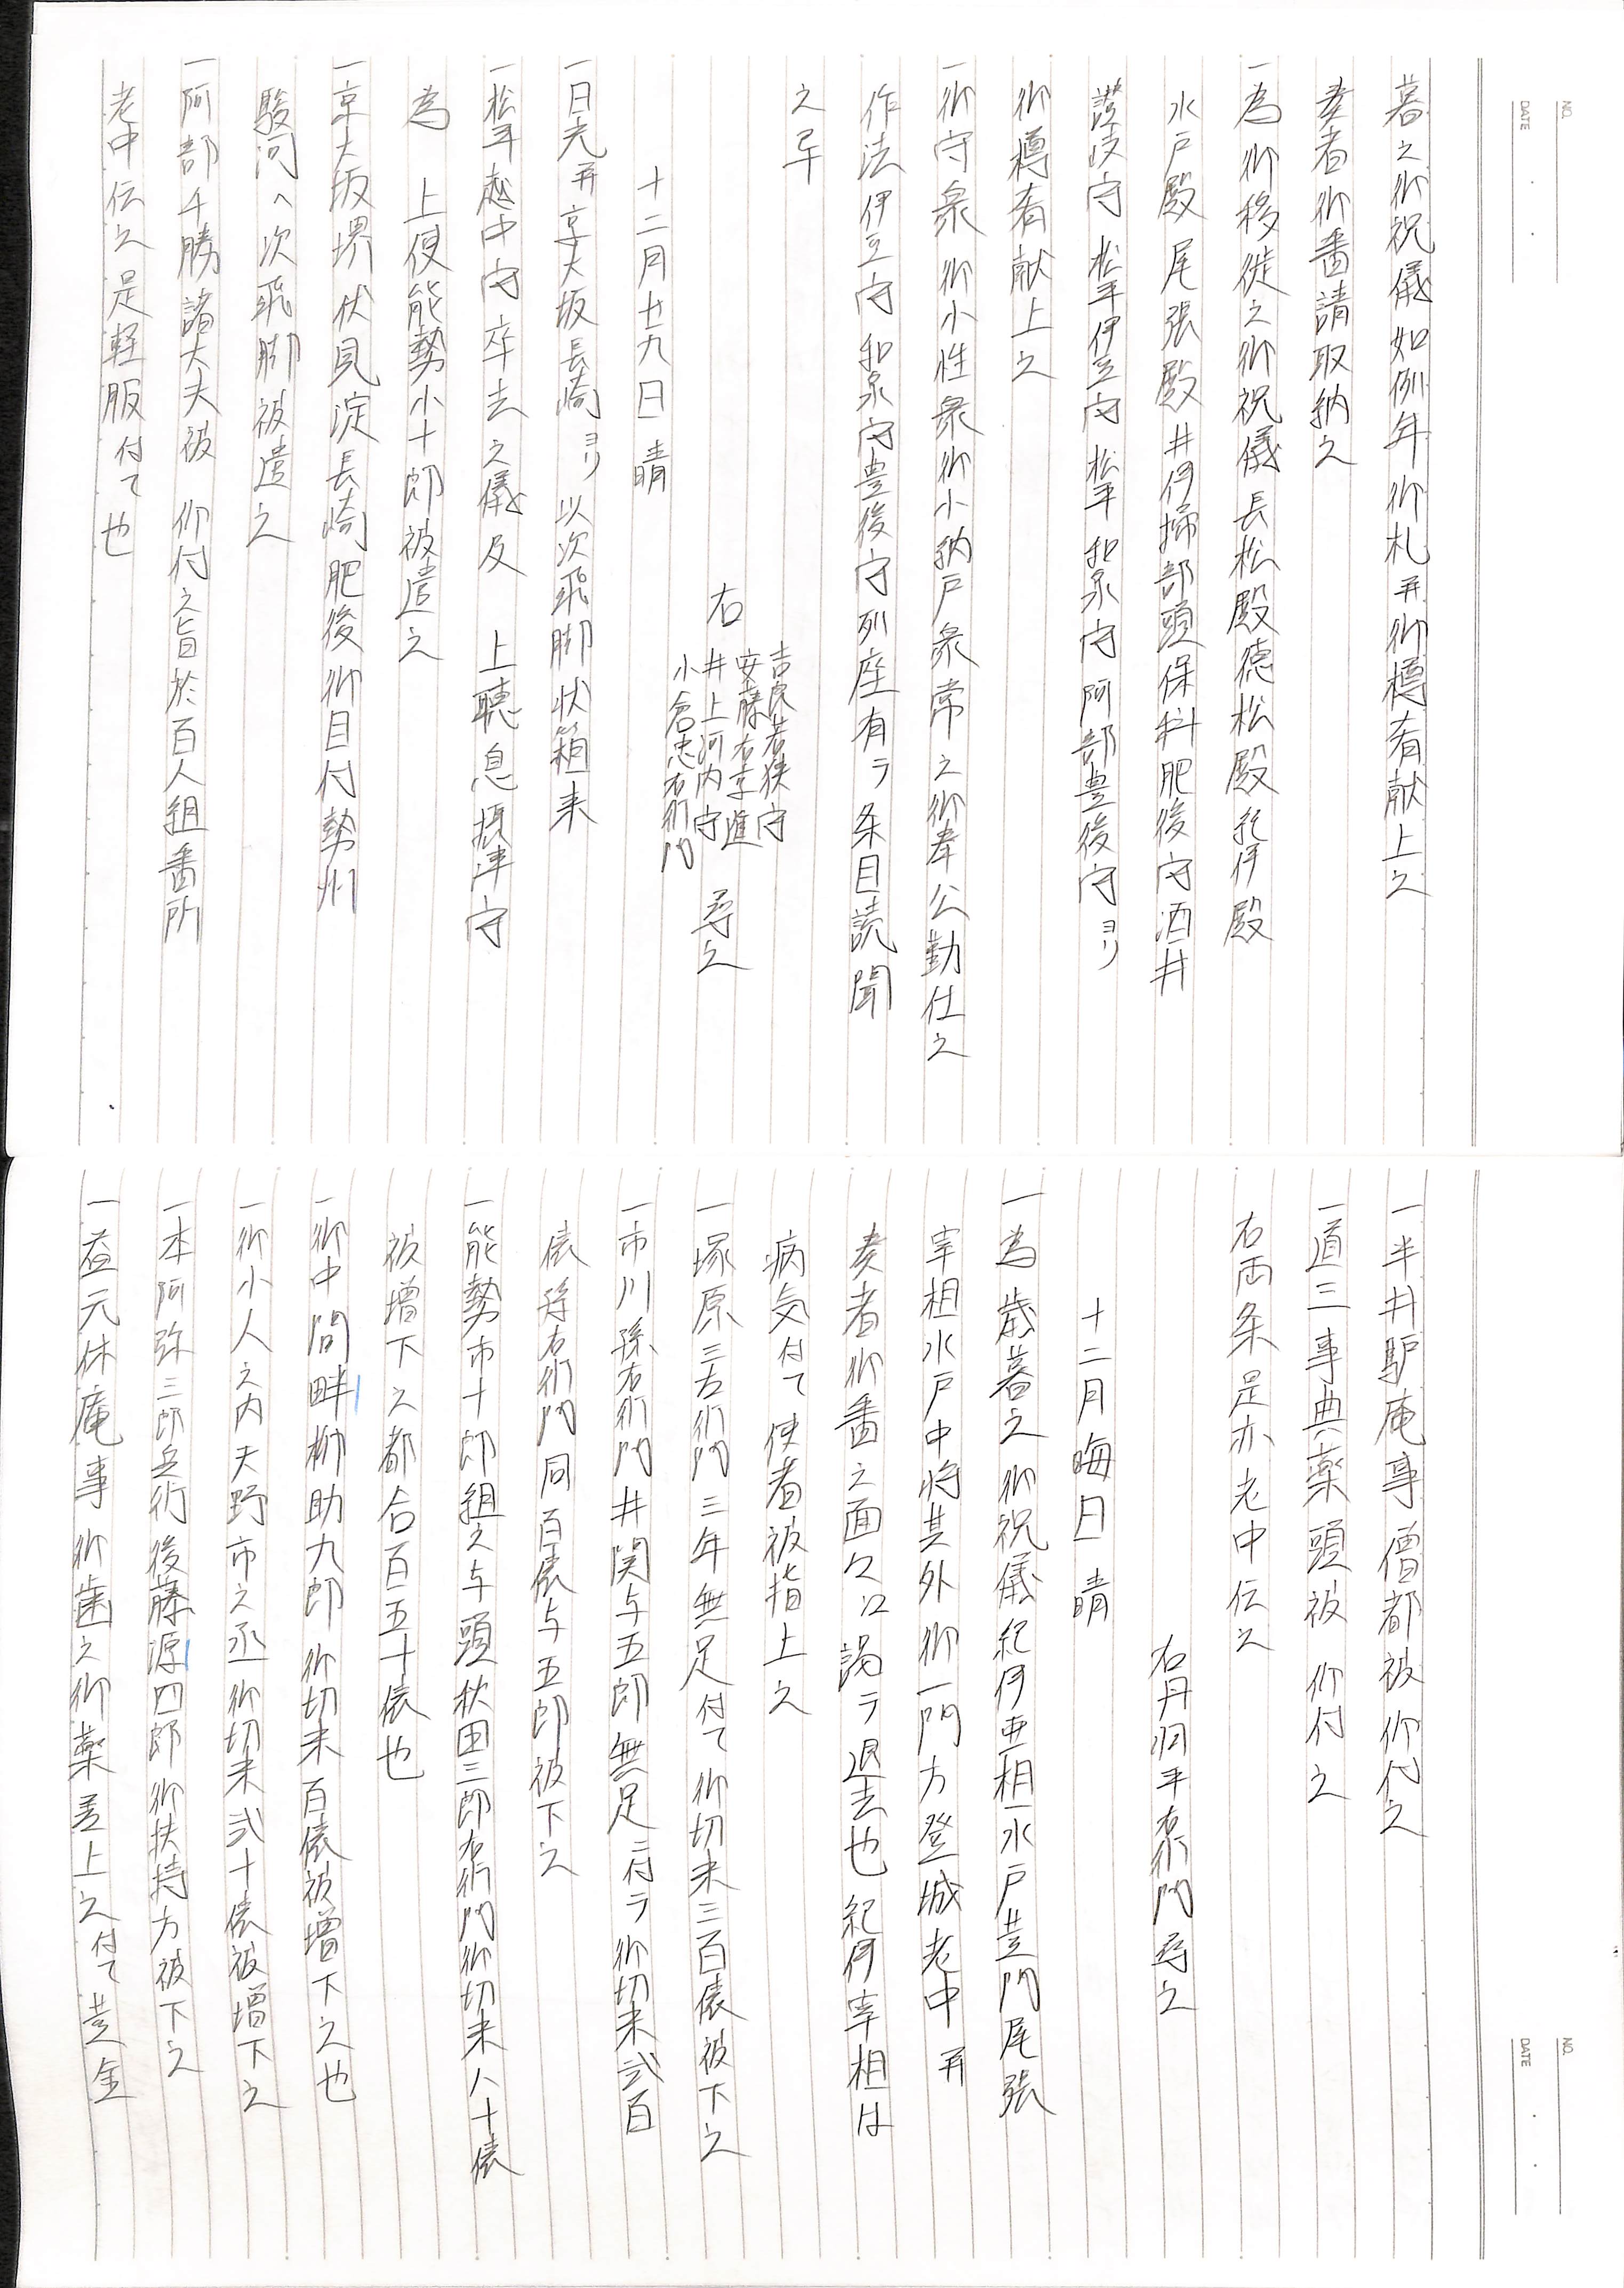 暮之御祝儀如例年御札并御樽肴献上之
奏者御番請取納之
一為御移徙之御祝儀長松殿徳松殿紀伊殿
水戸殿尾張殿井伊掃部頭保科肥後守酒井
讃岐守松平伊豆守松平和泉守阿部豊後守ヨリ
御樽肴献上之
一御守衆御小性衆御小納戸衆常之御奉公勤仕之
作法伊豆守和泉守豊後守列座有テ条目読聞
之畢
右
吉良若狭守
安藤右京進
井上河内守
小倉忠右衛門
尋之
十二月廿九日 晴
一日光并京大坂長崎ヨリ以次飛脚状箱来
一松平越中守卒去之儀及 上聴息摂津守
為 上使能勢小十郎被遣之
一京大坂堺伏見淀長崎肥後御目付勢州
駿河へ次飛脚被遣之
一阿部千勝諸大夫被 仰付之旨於百人組番所
老中伝之是軽服付て也
一半井驢庵事僧都被 仰付之
一道三事典薬頭被 仰付之
右両条是亦老中伝之
右丹羽平右衛門尋之
十二月晦日 晴
一為歳暮之御祝儀紀伊亜相水戸黄門尾張
宰相水戸中将其外御一門方登城老中并
奏者御番之面々江謁テ退去也紀伊宰相は
病気付て使者被指上之
一塚原三右衛門三年無足付て御切米三百俵被下之
一市川孫右衛門井関与五郎無足ニ付テ御切米弐百
俵孫右衛門同百俵与五郎被下之
一能勢市十郎組之与頭秋田三郎右衛門御切米八十俵
被増下之都合百五十俵也
一御中間畔柳助九郎御切米百俵被増下之也
一御小人之内天野市之丞御切米弐十俵被増下之
一本阿弥三郎兵衛後藤源四郎御扶持方被下之
一益元休庵事御歯之御薬差上之付て黄金